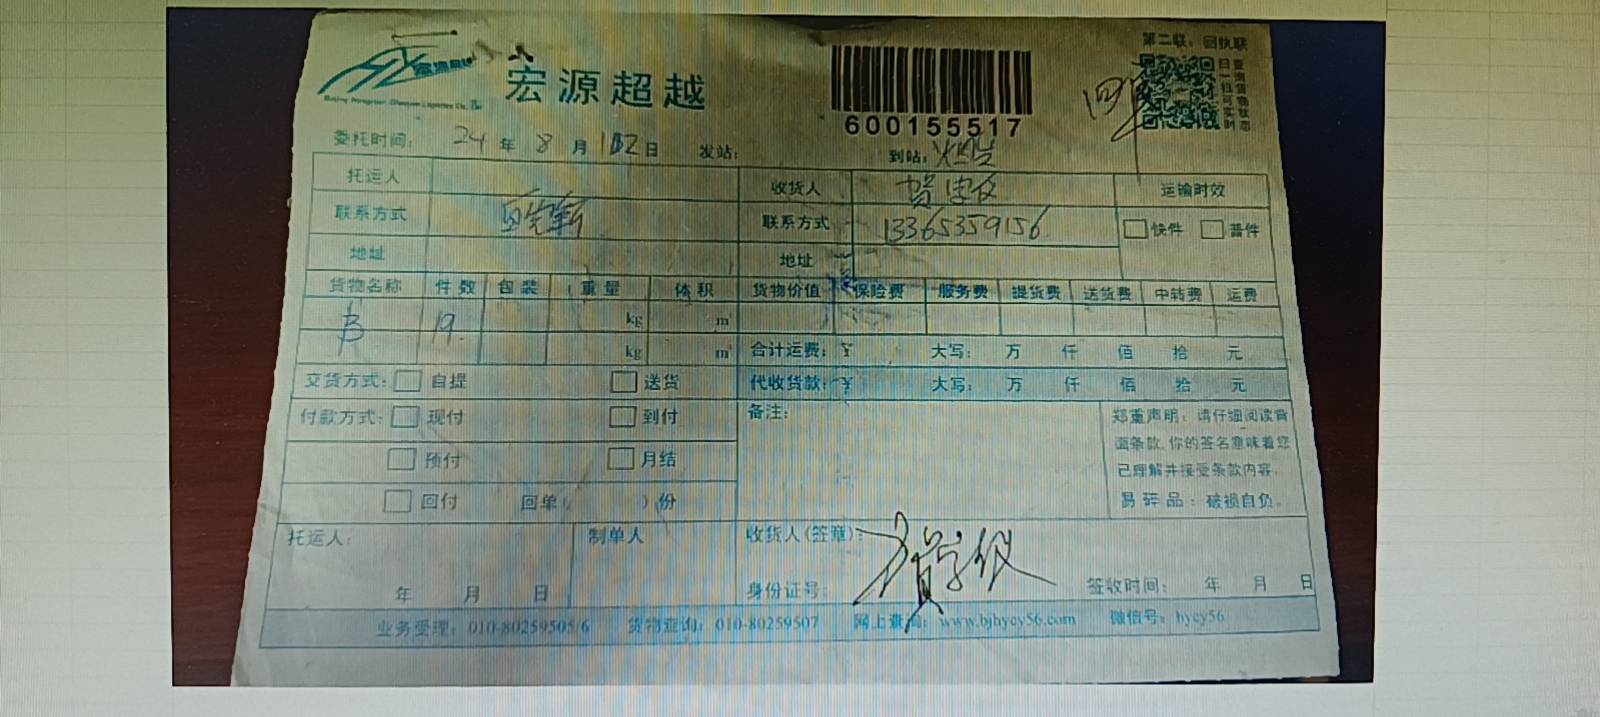 第二联：回执联
宏源超越
600155517
扫一扫可实时
查询货物状态
委托时间：24年8月12日 发站： 到站：
托运人 收货人 运输时效
联系方式 联系方式 13365359156 快件 普件
地址 地址
货物名称 件数 包装 重量 体积 货物价值 保险费 服务费 提货费 送货费 中转费 运费
19 kg m³
kg m³ 合计运费：¥ 大写： 万 仟 佰 拾 元
交货方式： 自提 送货 代收货款：¥ 大写： 万 仟 佰 拾 元
付款方式： 现付 到付 备注： 郑重声明：请仔细阅读背
面条款，你的签名意味着您
预付 月结 已理解并接受条款内容。
回付 回单（ ）份 易碎品：破损自负。
托运人： 制单人 收货人(签章)：
年 月 日 身份证号： 签收时间： 年 月 日
业务受理：010-80259505/6 货物查询：010-80259507 网上查询：www.bjhycy56.com 微信号：hycy56